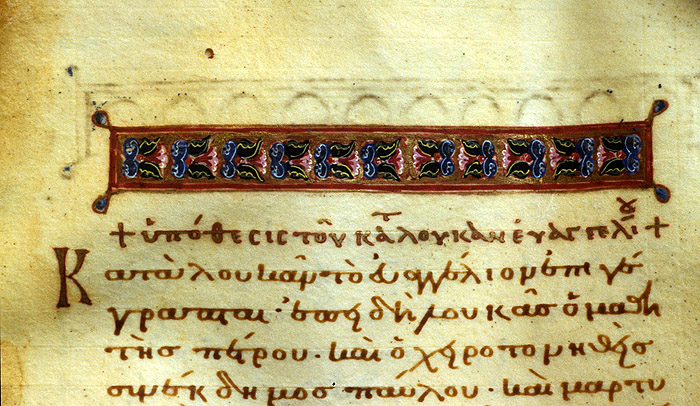 + ὑπόθεσις τοῦ κατ λουκᾶν ἐυαγγελίου +
Κατὰ λουκᾶν τὸ ἐυαγγέλιον ἐπιγέ
γραπται· ἐπειδὴ λουκᾶς ὁ μαθη
τὴς πέτρου· καὶ ὁ χειροτονηθεὶς
συνέκδημος παύλου· καὶ μαρτυ